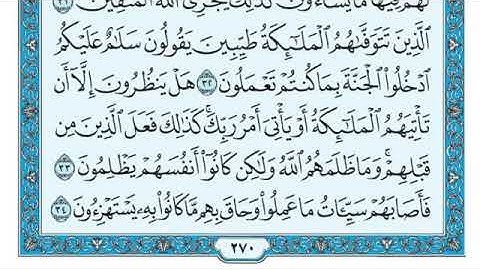 لَهُمْ فِيهَا مَا يَشَآءُونَ كَذَٰلِكَ يَجْزِى ٱللَّهُ ٱلْمُتَّقِينَ ٣١
ٱلَّذِينَ تَتَوَفَّىٰهُمُ ٱلْمَلَٰٓئِكَةُ طَيِّبِينَ يَقُولُونَ سَلَٰمٌ عَلَيْكُمُ
ٱدْخُلُوا۟ ٱلْجَنَّةَ بِمَا كُنتُمْ تَعْمَلُونَ ٣٢ هَلْ يَنظُرُونَ إِلَّآ أَن
تَأْتِيَهُمُ ٱلْمَلَٰٓئِكَةُ أَوْ يَأْتِىَ أَمْرُ رَبِّكَ ۚ كَذَٰلِكَ فَعَلَ ٱلَّذِينَ مِن
قَبْلِهِمْ ۚ وَمَا ظَلَمَهُمُ ٱللَّهُ وَلَٰكِن كَانُوٓا۟ أَنفُسَهُمْ يَظْلِمُونَ ٣٣
فَأَصَابَهُمْ سَيِّـَٔاتُ مَا عَمِلُوا۟ وَحَاقَ بِهِم مَّا كَانُوا۟ بِهِۦ يَسْتَهْزِءُونَ ٣٤
٢٧٠